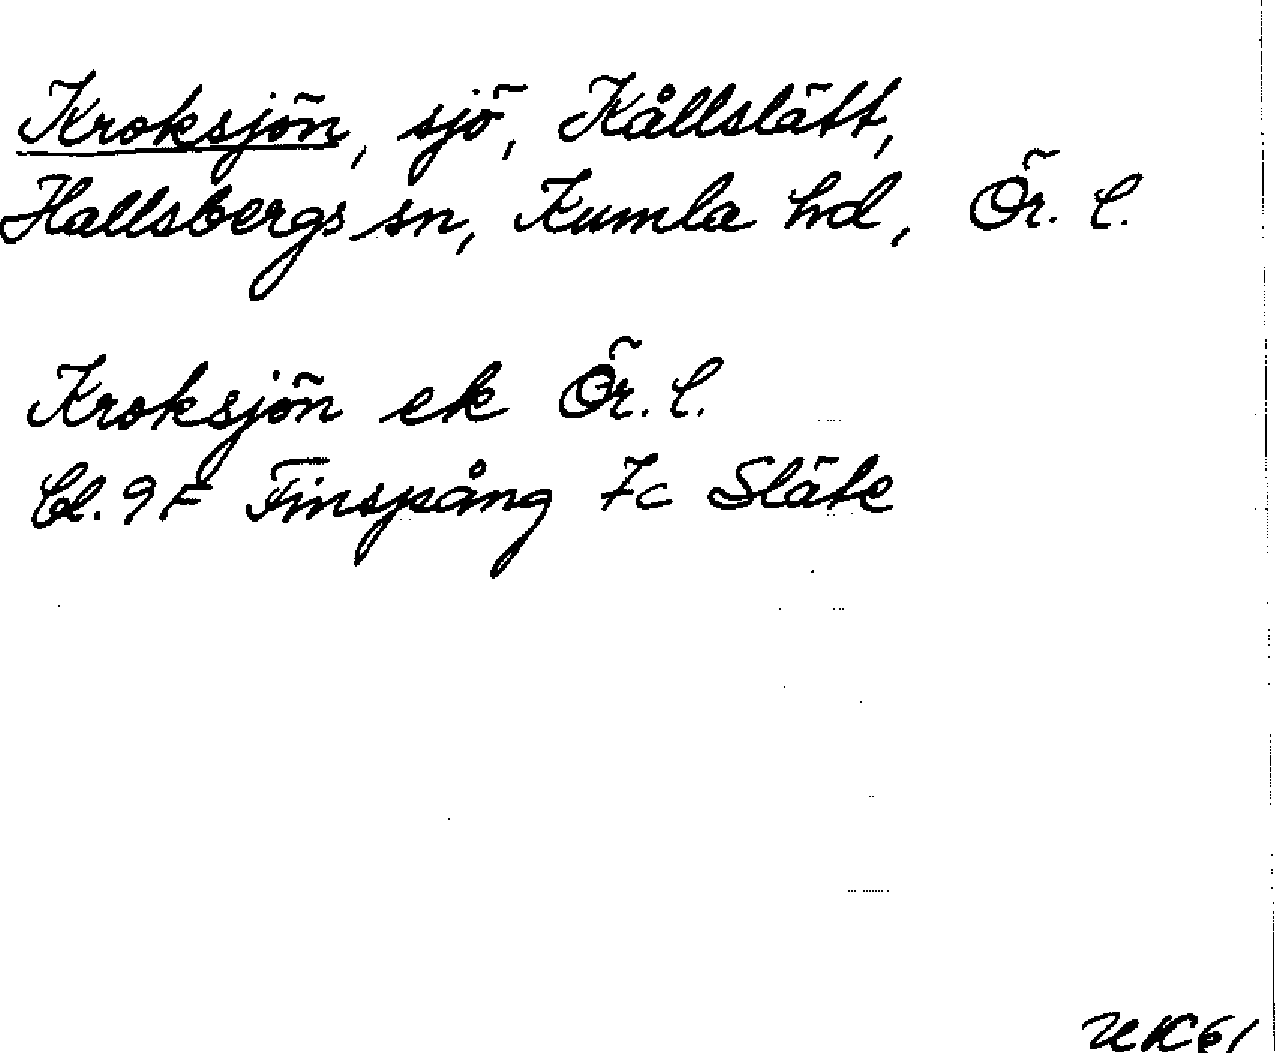 Kroksjön, sjö, Kållslätt,
Hallsbergs sn, Kumla hd, Ör. l.
Kroksjön ek Ör. l.
Bl. 9F Finspång 7c Släte